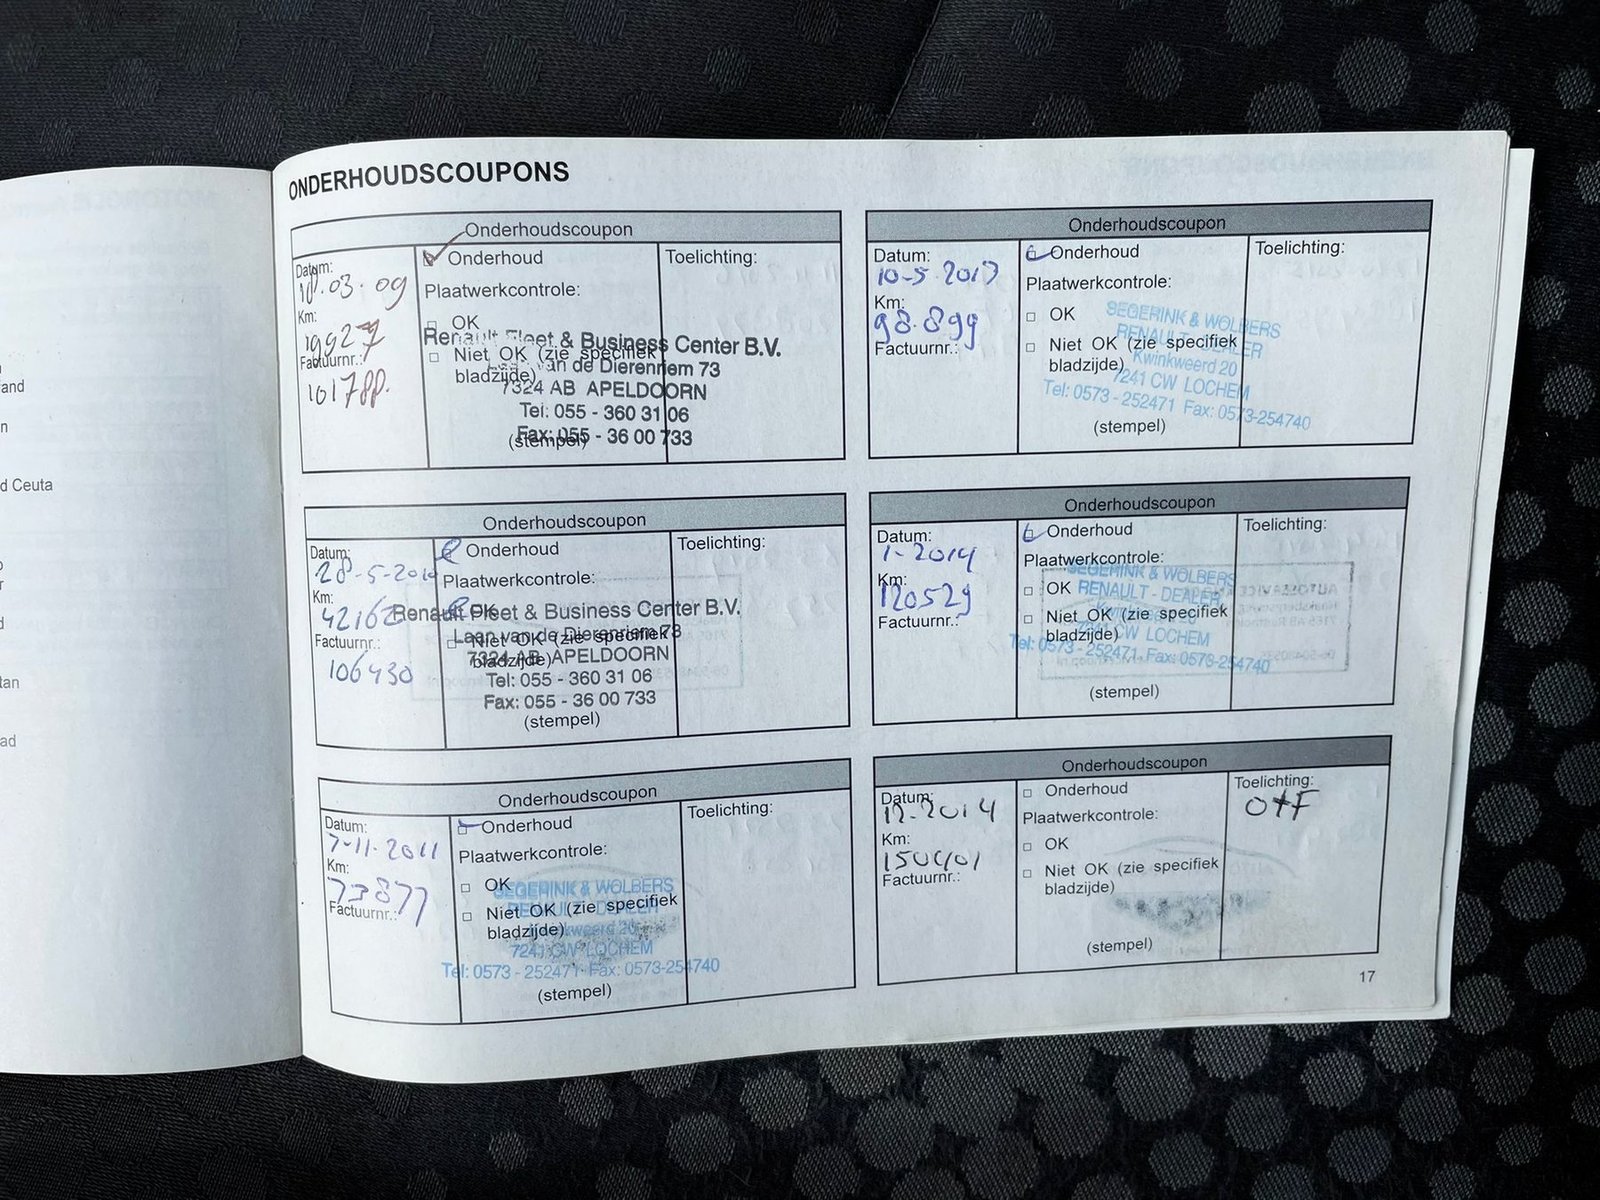 and
n
d Ceuta
r
d
tan
ad
ONDERHOUDSCOUPONS
Onderhoudscoupon
Datum:
18.03.09
Km:
19927
Factuurnr.:
Onderhoud
Plaatwerkcontrole:
OK
Niet OK (zie specifiek
bladzijde)
(stempel)
Renault Fleet & Business Center B.V.
Laan van de Dierenriem 73
7324 AB APELDOORN
Tel: 055 - 360 31 06
Fax: 055 - 36 00 733
Toelichting:
Onderhoudscoupon
Datum:
28-5-2010
Km:
42162
Factuurnr.:
106430
Onderhoud
Plaatwerkcontrole:
OK
Niet OK (zie specifiek
bladzijde)
(stempel)
Renault Fleet & Business Center B.V.
Laan van de Dierenriem 73
7324 AB APELDOORN
Tel: 055 - 360 31 06
Fax: 055 - 36 00 733
Toelichting:
Onderhoudscoupon
Datum:
7-11-2011
Km:
73877
Factuurnr.:
Onderhoud
Plaatwerkcontrole:
OK
Niet OK (zie specifiek
bladzijde)
(stempel)
SEGERINK & WOLBERS
RENAULT - DEALER
Kwinkweerd 20
7241 CW LOCHEM
Tel: 0573 - 252471 Fax: 0573-254740
Toelichting:
Onderhoudscoupon
Datum:
10-5-2013
Km:
98.899
Factuurnr.:
Onderhoud
Plaatwerkcontrole:
OK
Niet OK (zie specifiek
bladzijde)
(stempel)
SEGERINK & WOLBERS
RENAULT - DEALER
Kwinkweerd 20
7241 CW LOCHEM
Tel: 0573 - 252471 Fax: 0573-254740
Toelichting:
Onderhoudscoupon
Datum:
1-2014
Km:
120529
Factuurnr.:
Onderhoud
Plaatwerkcontrole:
OK
Niet OK (zie specifiek
bladzijde)
(stempel)
SEGERINK & WOLBERS
RENAULT - DEALER
Kwinkweerd 20
7241 CW LOCHEM
Tel: 0573 - 252471 Fax: 0573-254740
Toelichting:
Onderhoudscoupon
Datum:
12-2014
Km:
Factuurnr.:
Onderhoud
Plaatwerkcontrole:
OK
Niet OK (zie specifiek
bladzijde)
(stempel)
Toelichting:
O+F
17